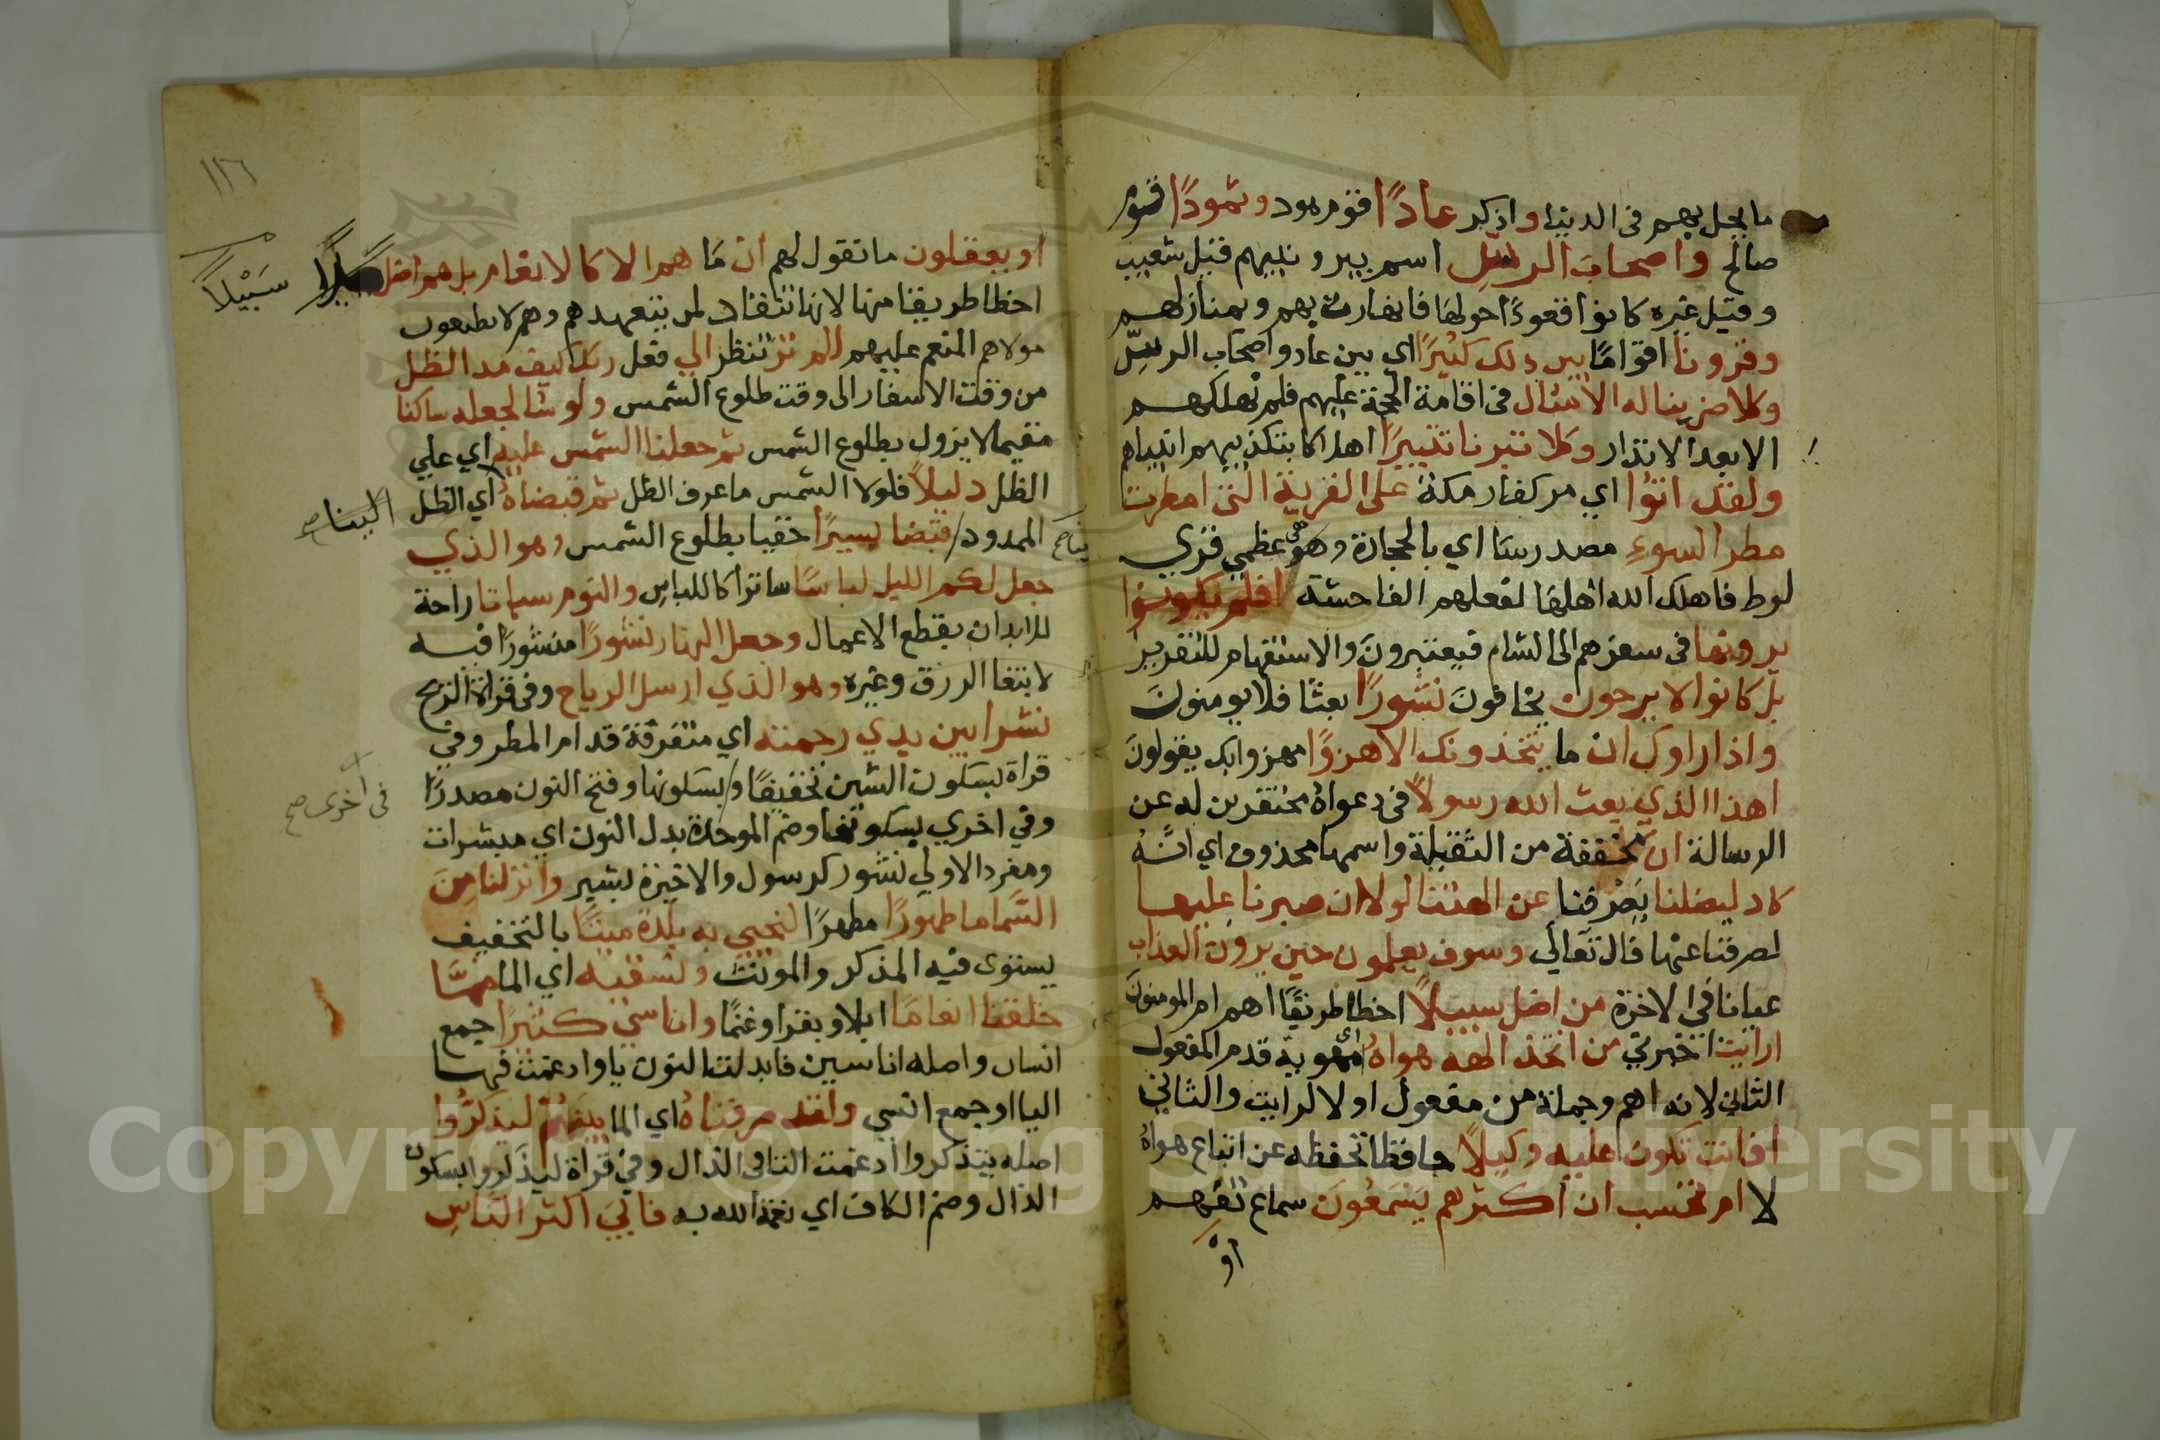 ما يحل بهم في الدنيا واذكر عادًا قوم هود وثمودًا قوم
صالح واصحاب الرسّ اسم بير ونبيهم قيل شعيب
وقيل غيره كانوا قعودًا حولها فانهارت بهم وبمنازلهم
وقرونا اقوامًا بين ذلك كثيرًا اي بين عاد واصحاب الرسّ
وكلا ضربنا له الامثال في اقامة الحجة عليهم فلم نهلكهم
الا بعد الانذار وكلا تبرنا تتبيرًا اهلاكا بتكذيبهم انبياهم
ولقد اتوا اي مر كفار مكة على القرية التي امطرت
مطر السوءِ مصدر ساء اي بالحجارة وهي عظمي قري
لوط فاهلك الله اهلها لفعلهم الفاحشة افلم يكونوا
يرونها في سفرهم الى الشام فيعتبرونَ والاستفهام للتقرير
بل كانوا لا يرجون يخافونَ نشورًا بعثا فلا يومنونَ
واذا راوك ان ما يتخذونك الا هزوًا مهزوا بك يقولونَ
اهذا الذي بعث الله رسولًا في دعواهُ محتقرين له عن
الرسالة ان مخففة من الثقيلة واسمها محذوف اي انّهُ
كاد ليضلنا يَصْرِفنا عن الهتنا لولا ان صبرنا عليها
لصرفنا عنها قال تعالي وسوف يعلمون حين يرون العذاب
عيانا في الاخرة من اضل سبيلًا اخطا طريقًا اهم ام المومنونَ
ارايت اخبرني من اتخذ الهه هواهُ اي مهويه قدم المفعول
الثاني لانه اهم وجملة من مفعول اولا لرايت والثاني
افانت تكون عليه وكيلًا حافظا تحفظه عن اتباع هواهُ
لا ام تحسب ان اكثرهم يَسْمَعُونَ سماع تفهم
اوْ
١١٦
او يعقلون ما تقول لهم ان مَا هم الا كالانعام بل هم اضل
سَبِيْلًا
اخطا طريقا منها لانها تنقاد لمن يتعهدهم وهم لا يطيعون
مولاهم المنعم عليهم الم تر تنظر الي فعل ربك كيف مد الظل
من وقت الاسفار الى وقت طلوع الشمس ولو شا لجعله ساكنا
مقيما لا يزول بطلوع الشمس ثم جعلنا الشمس عليه اي علي
الظل دليلًا فلولا الشمس ما عرف الظل ثم قبضناهُ اي الظل
الينا صح
الممدود قبضا يسيرًا خفيا بطلوع الشمس وهو الذي
جعل لكم الليل لباسًا ساترا كاللباسِ والنوم سباتا راحة
للابدان بقطع الاعمال وجعل النهار نشورًا منشورًا فيه
لابتغا الرزق وغيره وهو الذي ارسل الرياح وفي قراة الريح
نشرا بين يدي رحمته اي متفرقة قدام المطر وفي
قراة بسكون الشين تخفيفًا وبسكونها وفتح النون مصدرًا
في أخرى صح
وفي اخري بسكونها وضم الموحدة بدل النون اي مبشرات
ومفرد الاولي نشور كرسول والاخيرة بشير وانزلنا مِنَ
السَّما ما طهورًا مطهرًا لنحيي به بلدة ميتًا بالتخفيف
يستوى فيه المذكر والمونث ونسقيه اي الما ممّا
خلقنا انعامًا ابلا وبقرا وغنمًا واناسي كثيرًا جمع
انسان واصله اناسين فابدلت النون يا وادغمت فيها
اليا او جمع انسي ولقد صرفناهُ اي الما بينَهُمْ ليذكرُوا
اصله يتذكروا ادغمت التا في الذال وفي قراة ليذكروا بسكون
الذال وضم الكاف اي نعمة الله به فابيَ اكثر النّاسِ